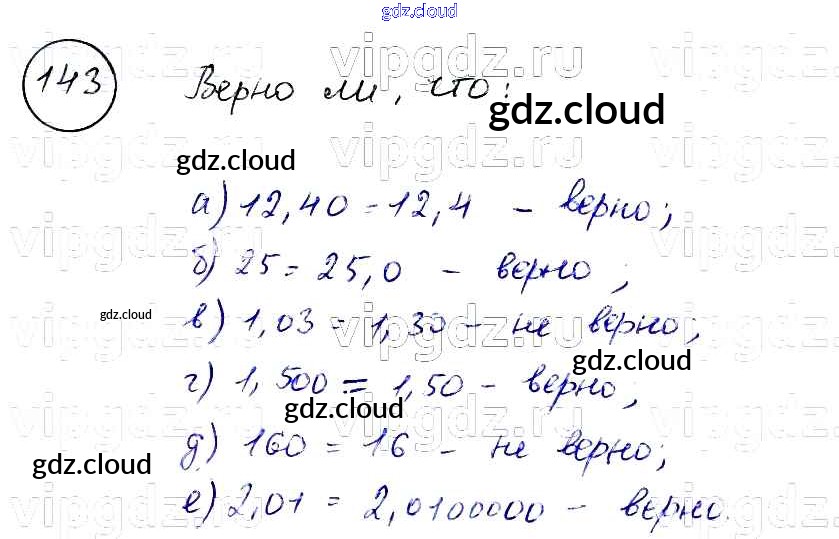 gdz.cloud
143 Верно ли, что:
gdz.cloud
gdz.cloud
а) 12,40 = 12,4 - верно;
б) 25 = 25,0 - верно;
gdz.cloud
в) 1,03 = 1,30 - не верно;
gdz.cloud
г) 1,500 = 1,50 - верно;
gdz.cloud
д) 160 = 16 - не верно;
gdz.cloud
е) 2,01 = 2,0100000 - верно.
vipgdz.ru